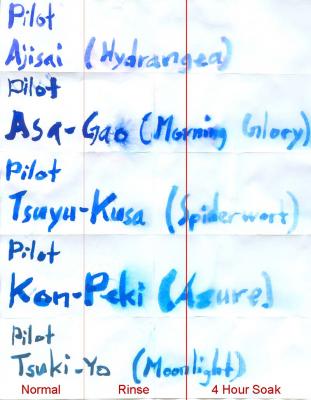 Pilot
Ajisai (Hydrangea)
Pilot
Asa-Gao (Morning Glory)
Pilot
Tsuyu-Kusa (Spiderwort)
Pilot
Kon-Peki (Azure)
Pilot
Tsuki-Yo (Moonlight)
Normal Rinse 4 Hour Soak